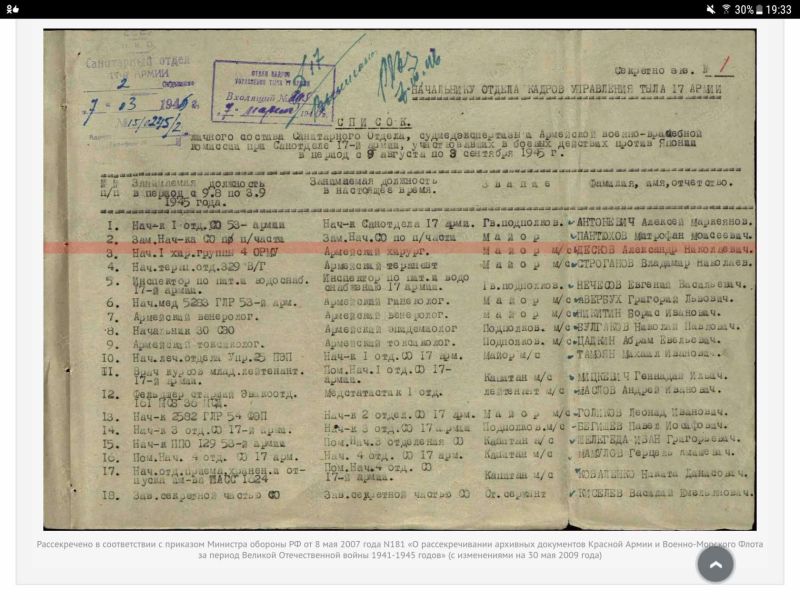 30% 19:33
Санитарный отдел
17й АРМИИ
2
7 - 03 1946 г.
ОТДЕЛ КАДРОВ
УПРАВЛЕНИЯ ТЫЛА 17 АРМИИ
Входящий №
7 - марта
Секретно экз. № 1
НАЧАЛЬНИКУ ОТДЕЛА КАДРОВ УПРАВЛЕНИЯ ТЫЛА 17 АРМИИ
СПИСОК
личного состава Санитарного Отдела, судмедэксперта и Армейской военно-врачебной
комиссии при Санотделе 17-й армии, участвовавших в боевых действиях против Японии
в период с 9 августа по 3 сентября 1945 г.
№№ Занимаемая должность Занимаемая должность Звание Фамилия, имя, отчество.
п/п в период с 9.8 по 3.9 в настоящее время.
1945 года.
1. Нач-к 1 отд. СО 53- армии Нач-к Санотдела 17 арми. Гв.подполков. АНТОНЕВИЧ Алексей Маркеянов.
2. Зам.Нач-ка СО по п/части Зам.Нач.СО по п/части Майор ПАНТЮХОВ Митрофан Моисеевич.
3. Нач.1 хир.группы 4 ОРМУ Армейский хирург. Майор м/с ПЕСКОВ Александр Николаевич.
4. Нач.терап.отд.329 В/Г Армейский терапевт Майор м/с СТРОГАНОВ Владимир Николаев.
5. Инспектор по пит.и водоснаб. Инспектор по пит.и водо
17-й армии. снабжению 17 армии. Гв.подполков. НЕЧЕСОВ Евгений Васильевич.
6. Нач.мед 5283 ГЛР 53-й арм. Армейский гинеколог. Майор м/с АВЕРБУХ Григорий Львович.
7. Армейский венеролог. Армейский венеролог. Майор м/с НИКИТИН Борис Иванович.
8. Начальник 30 СЭО Армейский эпидемиолог Подполков. м/с БУЛГАКОВ Николай Павлович.
9. Армейский токсиколог. Армейский токсиколог. Подполков. м/с ЦАДКИН Абрам Евельевич.
10. Нач.леч.отдела Упр.25 ПЭП Нач-к 1 отд.СО 17 арм. Майор м/с ТАМОЯН Михаил Иванович.
11. Врач курсов млад.лейтенант. Пом.Нач.1 отд.СО 17-
17-й армии. армии. Капитан м/с МИЦКЕВИЧ Геннадий Ильич.
12. Фельдшер старший Эвакоотд. Медстатистик 1 отд. лейтенант м/с МАСЛОВ Андрей Иванович.
13. Нач-к 2582 ГЛР 54 ФЭП Нач-к 2 отдел.СО 17 арм. Майор м/с ГОЛИКОВ Леонид Иванович.
14. Нач-к 3 отд. СО 17-й армии. Нач-к 3 отд. СО 17 армии Подполков.м/с БЕГИШЕВ Павел Иосифович.
15. Нач-к ППО 129 53-й армии Пом.Нач.3 отделения СО Капитан м/с ШЕЛЕГЕДА Иван Григорьевич.
16. Пом.Нач. 4 отд. СО 17 арм. Нач. 4 отд. СО 17 арм. Капитан м/с МАМУЛОВ Герцель
17. Нач.отд.приема,хранен.и от- Пом.Нач.4 отд. СО
пуска им-ва 1824 17-й армии. Капитан м/с КОВАЛЕНКО Никита Данилович.
18. Зав.секретной частью СО Зав.секретной частью СО Ст.сержант КИСЕЛЕВ Василий Емельянович.
Рассекречено в соответствии с приказом Министра обороны РФ от 8 мая 2007 года N181 «О рассекречивании архивных документов Красной Армии и Военно-Морского Флота
за период Великой Отечественной войны 1941-1945 годов» (с изменениями на 30 мая 2009 года)